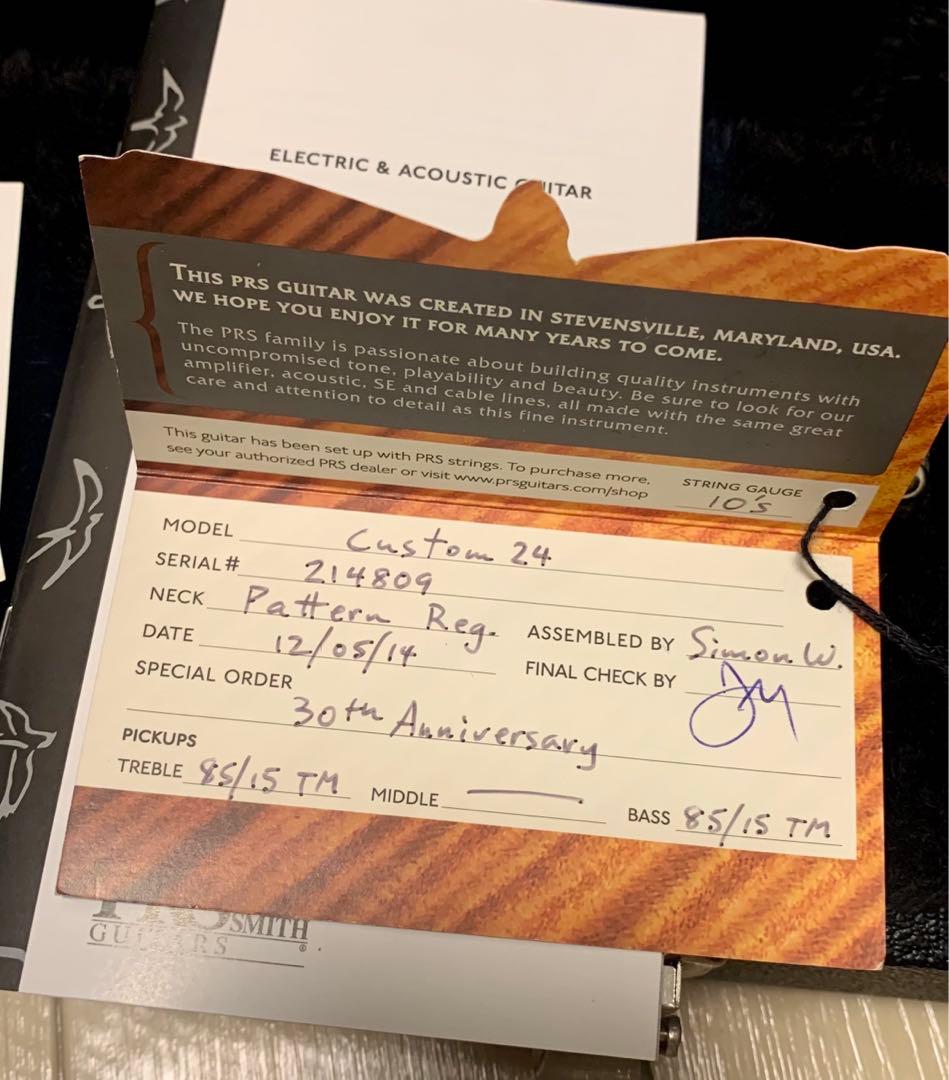 ELECTRIC & ACOUSTIC GUITAR
THIS PRS GUITAR WAS CREATED IN STEVENSVILLE, MARYLAND, USA.
WE HOPE YOU ENJOY IT FOR MANY YEARS TO COME.
The PRS family is passionate about building quality instruments with
uncompromised tone, playability and beauty. Be sure to look for our
amplifier, acoustic, SE and cable lines, all made with the same great
care and attention to detail as this fine instrument.
This guitar has been set up with PRS strings. To purchase more,
see your authorized PRS dealer or visit www.prsguitars.com/shop
STRING GAUGE
10's
MODEL Custom 24
SERIAL# 214809
NECK Pattern Reg.
DATE 12/05/14
ASSEMBLED BY Simon W.
FINAL CHECK BY
SPECIAL ORDER
30th Anniversary
PICKUPS
TREBLE 85/15 TM MIDDLE — BASS 85/15 TM
SMITH
GUITARS